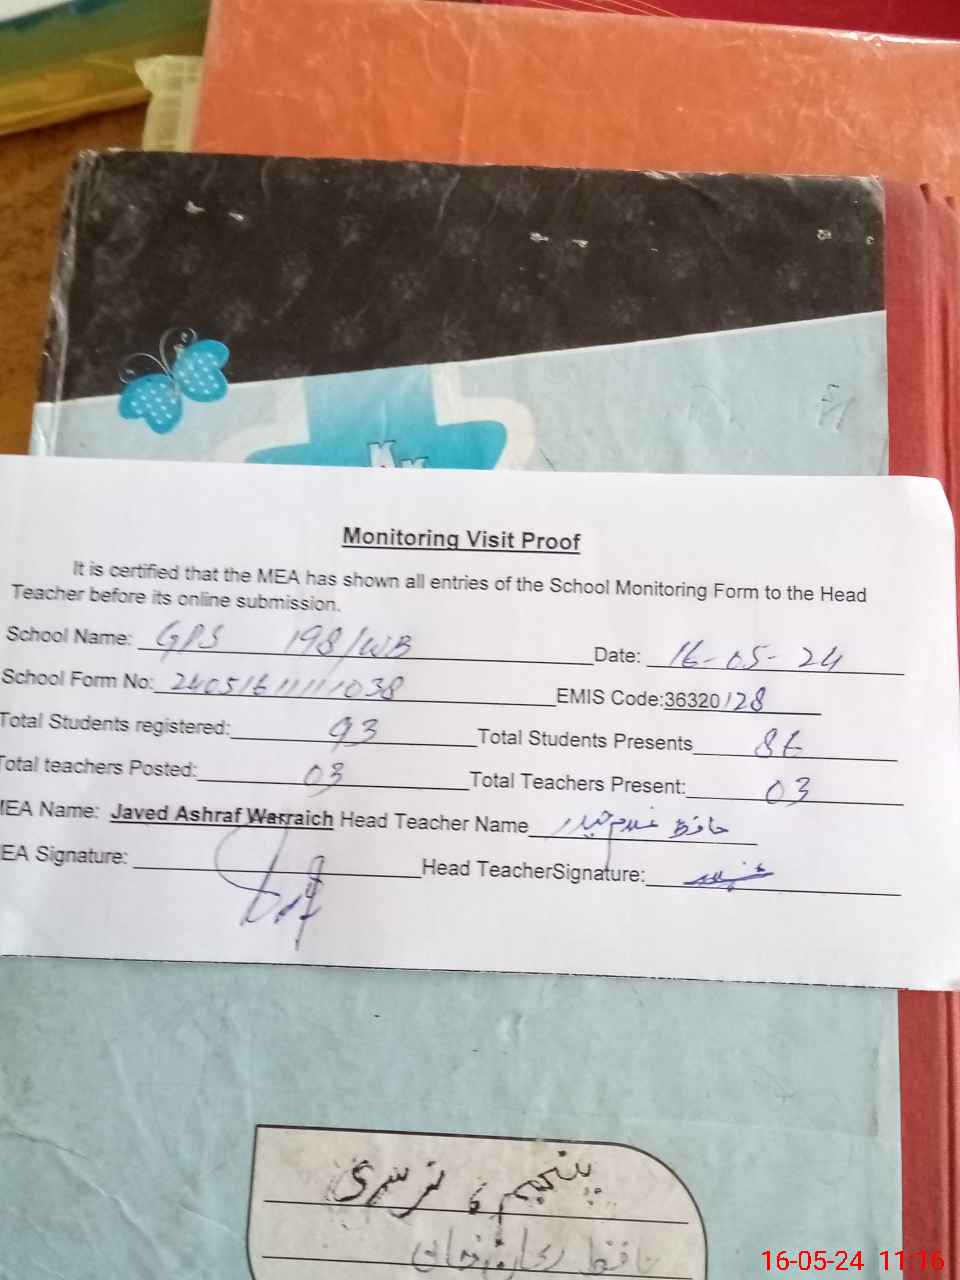 Monitoring Visit Proof
It is certified that the MEA has shown all entries of the School Monitoring Form to the Head
Teacher before its online submission.
School Name: GPS 198/WB Date: 16-05-24
School Form No: 240516111111038 EMIS Code:36320128
Total Students registered: 93 Total Students Presents 86
Total teachers Posted: 03 Total Teachers Present: 03
MEA Name: Javed Ashraf Warraich Head Teacher Name حافظ غلام حیدر
EA Signature: Head TeacherSignature:
پنجم، نرسری
حافظ
16-05-24 11:16